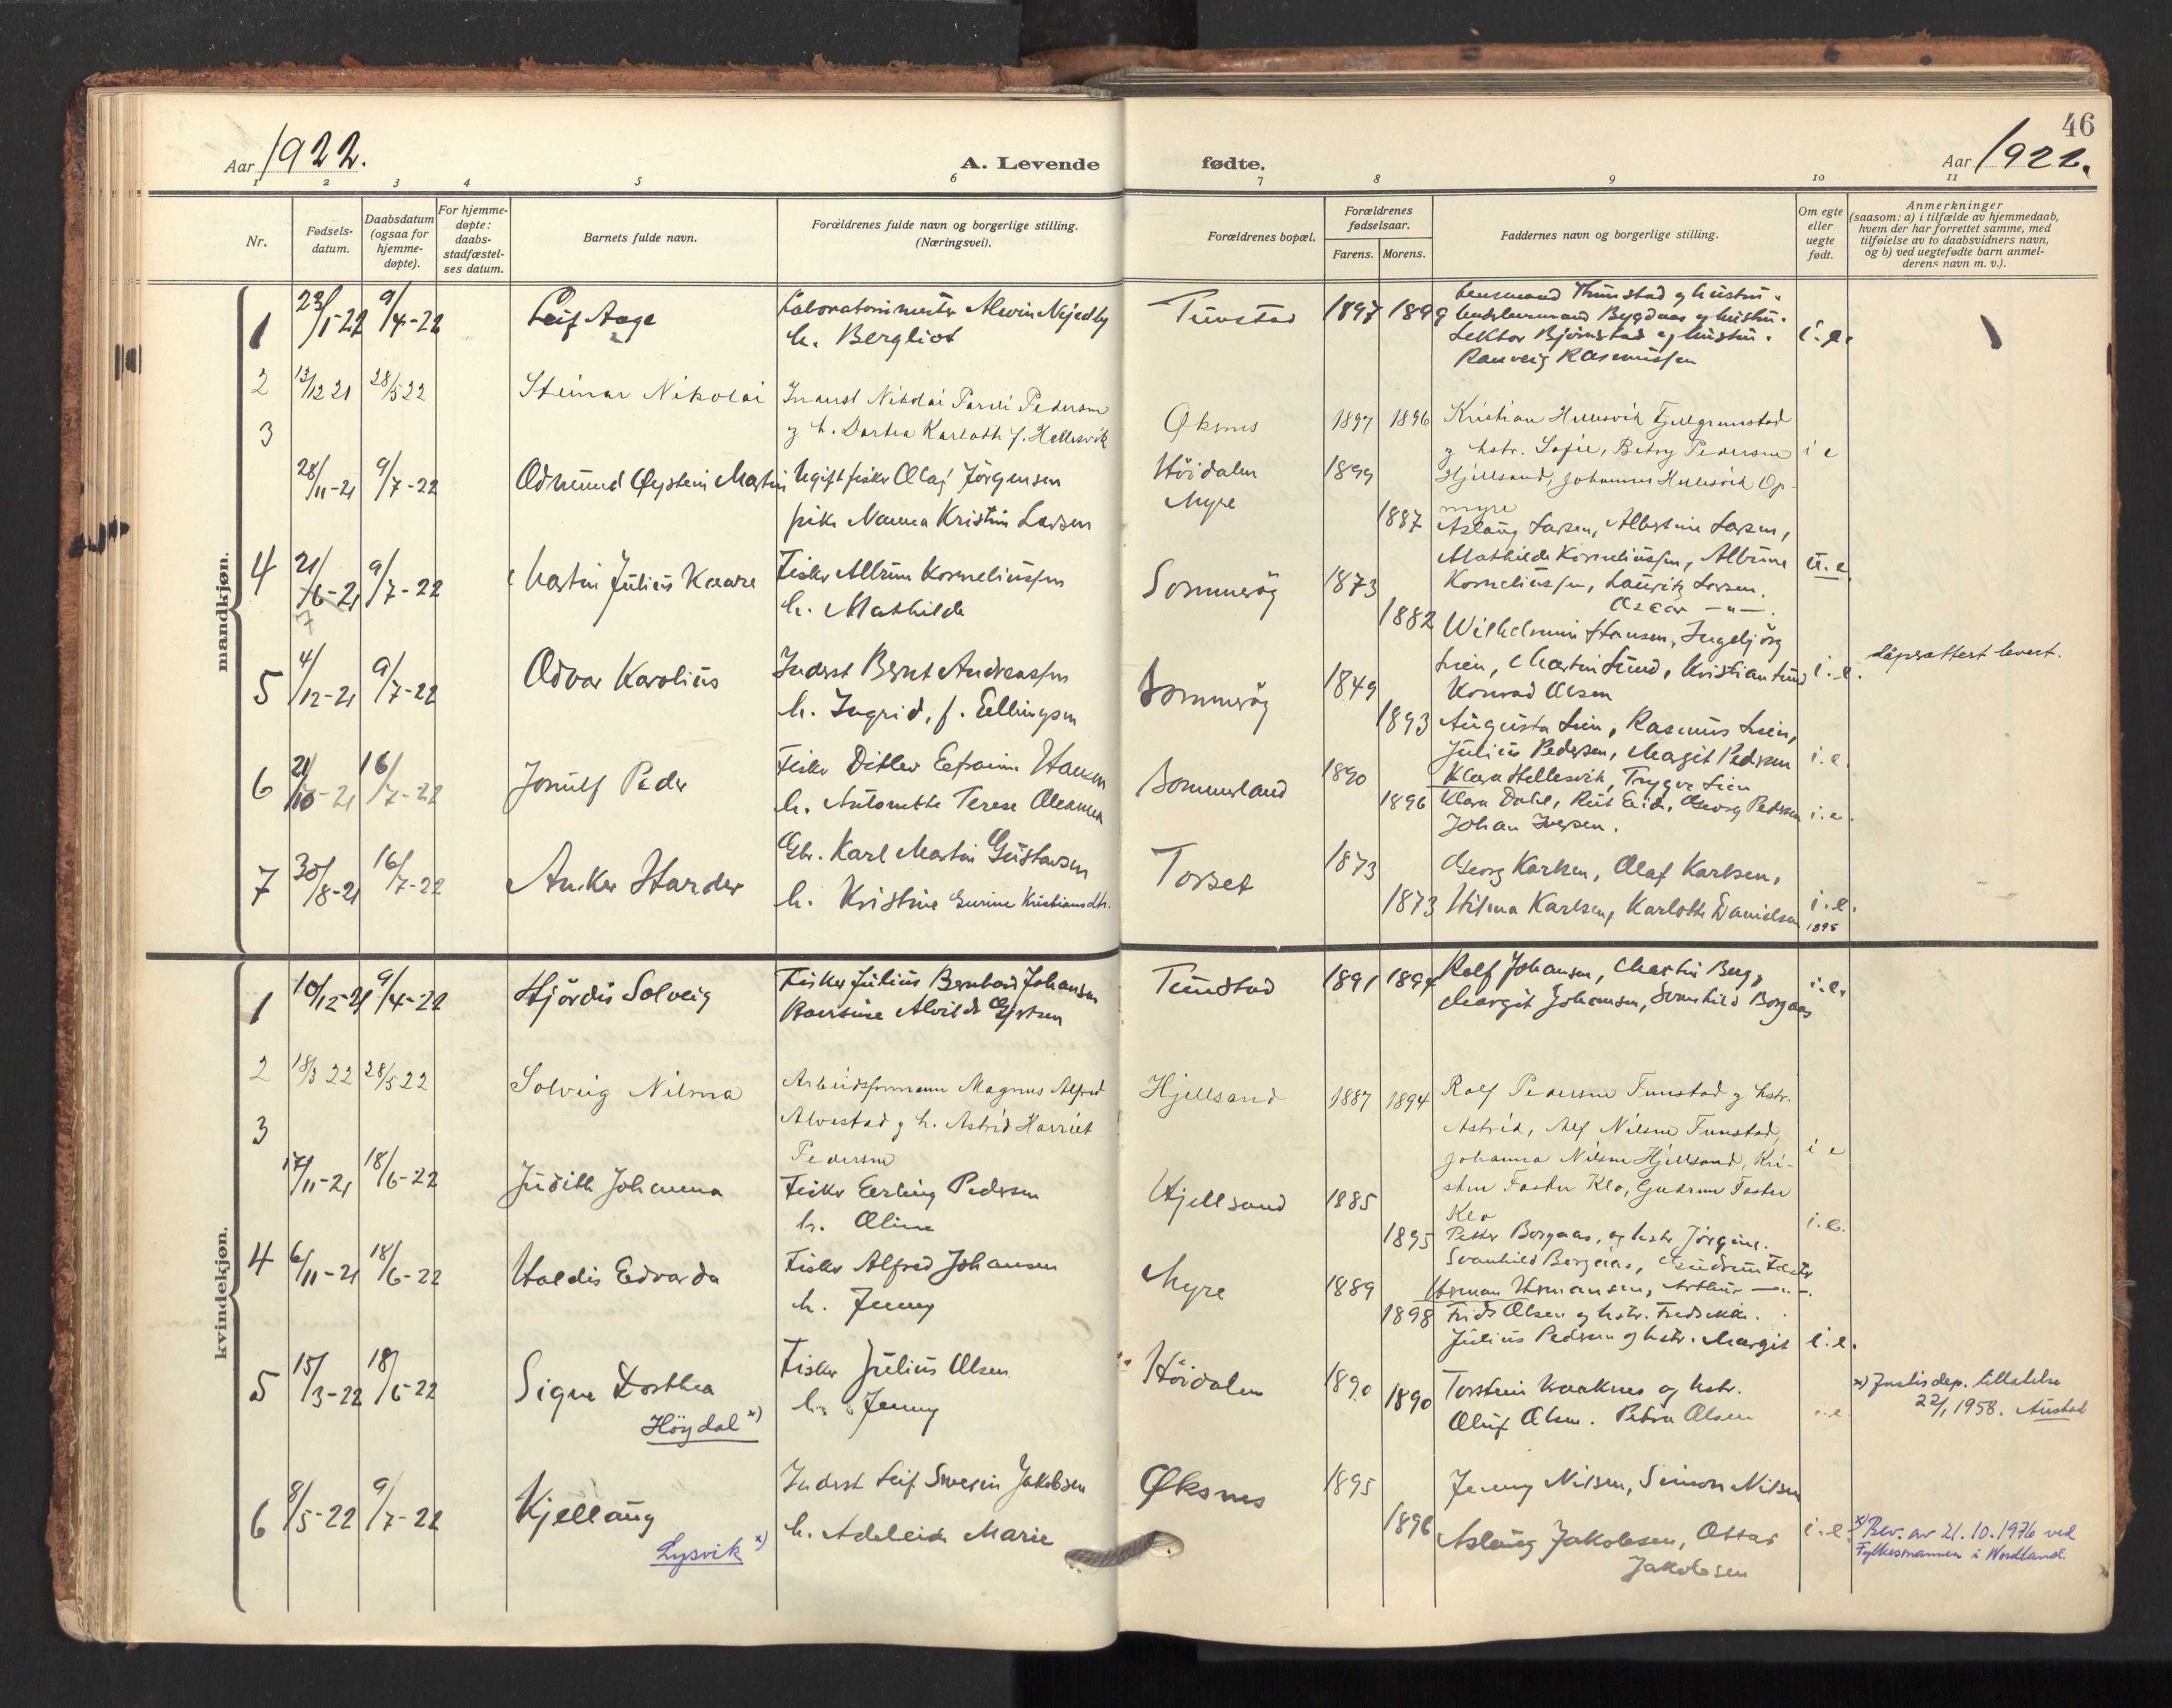 46
Aar 1922.
A. Levende fødte.
Aar 1922.
1 2 3 4 5 6 7 8 9 10 11
Nr.
Fødsels-
datum.
Daabsdatum
(ogsaa for
hjemme-
døpte).
For hjemme-
døpte:
daabs-
stadfæstel-
ses datum.
Barnets fulde navn.
Forældrenes fulde navn og borgerlige stilling.
(Næringsvei).
Forældrenes bopæl.
Forældrenes
fødselsaar.
Farens. Morens.
Faddernes navn og borgerlige stilling.
Om egte
eller
uegte
født.
Anmerkninger
(saasom: a) i tilfælde av hjemmedaab,
hvem der har forrettet samme, med
tilføielse av to daabsvidners navn,
og b) ved uegtefødte barn anmel-
derens navn m. v.).
mandkjøn.
1 23/1-22 9/4-22 Leif Aage
h. Bergliot
Tunstad 1897 1899
Lensmand Tunstad og hustru.
Bygdnes og hustru.
Lektor Bjørnstad og hustru.
Ranveig Rasmussen
i.e.
2 13/12 21 28/5 22 Steinar Nikolai
Inderst Nikolai Pareli Pedersen
og h. Dortea Karlotte f. Hellesvik
Øksnes 1897 1896
Kristian Hellesvik
og hstr. Sofie, Betsy Pedersen
Hjellsand, Johannes Hellesvik Op-
myre
i e
3 28/11-21 9/7-22 Odmund Øystein Martin
Ugift fisker Olaf Jørgensen
pike Nanna Kristine Larsen
Höidalen
Myre
1899 1887
Aslaug Larsen, Albertine Larsen,
Mathilde Korneliussen, Albrine
Korneliussen, Lauritz Larsen.
Oscar —"—.
u.e.
4 21/6-21 9/7-22 Martin Julius Kaare
7
Fisker Albrun Korneliussen
h. Mathilde
Sommerøy 1873 1882
Wilhelmine Hansen, Ingebjörg
Lien, Martin Lund, Kristian Lund
Konrad Olsen
i.e.
dåpsattest levert.
5 4/12-21 9/7-22 Odvar Karolius
Inderst Bernt Andreassen
h. Ingrid, f. Ellingsen
Sommerøy 1849 1893
Augusta Lien, Rasmus Lien,
Julius Pedersen, Margit Pedersen
Klara Hellesvik, Trygve Lien
i.e.
6 21/10-21 16/7-22 Jonulf Peder
Fisker Ditlev Efraim Hansen
h. Antonette Terese
Sommerland 1890 1896
Klara Dahl, Georg Pedersen
Johan Iversen.
i.e.
7 30/8-21 16/7-22 Anker Harder
Gbr. Karl Martin Gustavsen
h. Kristine Gurine Kristiansdtr.
Torset 1873 1873
Georg Karlsen, Olaf Karlsen,
Hilma Karlsen, Karlotte Danielsen
i.e.
1895
kvindekjøn.
1 10/12-21 9/4-22 Hjördis Solveig
Fisker Julius Bernhard Johansen
Alvilde
Tunstad 1891 1894
Rolf Johansen, Martin Berg,
Margit Johansen, Svanhild Borgaas
i.e.
2 18/3 22 28/5 22 Solveig Nilma
Arbeidsformann Magnus Alfred
Alvestad og h. Astrid Harriet
Pedersen
Hjellsand 1887 1894
Rolf Pedersen Tunstad og hstr.
Astrid, Alf Nilsen Tunstad,
Johanna Nilsen Hjellsand, Kri-
stine Foster Klo, Gudrun Foster
Klo
i e
3 17/11-21 18/6-22 Judith Johanna
Fisker Erling Pedersen
h. Oline
Hjellsand 1885 1895
Petter Borgaas, og hstr. Jørgine.
Svanhild Borgaas, Gudrun Foster
i.e.
4 6/11-21 18/6-22 Haldis Edvarda
Fisker Alfred Johansen
h. Jenny
Myre 1889 1898
Herman Hermansen, Arthur —"—.
Frids Olsen og hstr. Fredrikke.
Julius Pedersen og hstr. Margit
i.e.
5 15/3-22 18/6-22 Signe Dorthea
Höydal x)
Fisker Julius Olsen
h. Jenny
Höidalen 1890 1890
Torstein Kraaknes og hstr.
Oluf Olsen. Petra Olsen
i.e.
x) Justisdep. tillatelse
22/1 1958. Austad
6 8/5-22 9/7-22 Kjellaug
Lysvik x)
Inderst Leif Sverin Jakobsen
h. Adeleide Marie
Øksnes 1895 1896
Jenny Nilsen, Simon Nilsen
Aslaug Jakobsen, Ottar
Jakobsen
i.e.
x) Bev. av 21.10.1976 ved
Fylkesmannen i Nordland.